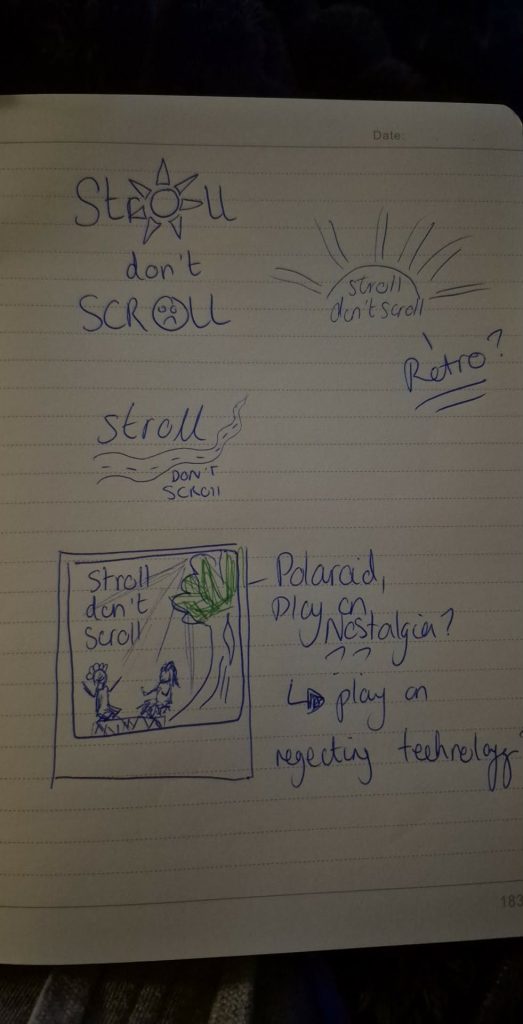 Date:
Stroll
don't
SCROLL
stroll
don't scroll
Retro?
stroll
DON'T
SCROLL
Stroll
don't
Scroll
Polaroid,
Play on
Nostalgia?
??
play on
regecting technology?
183